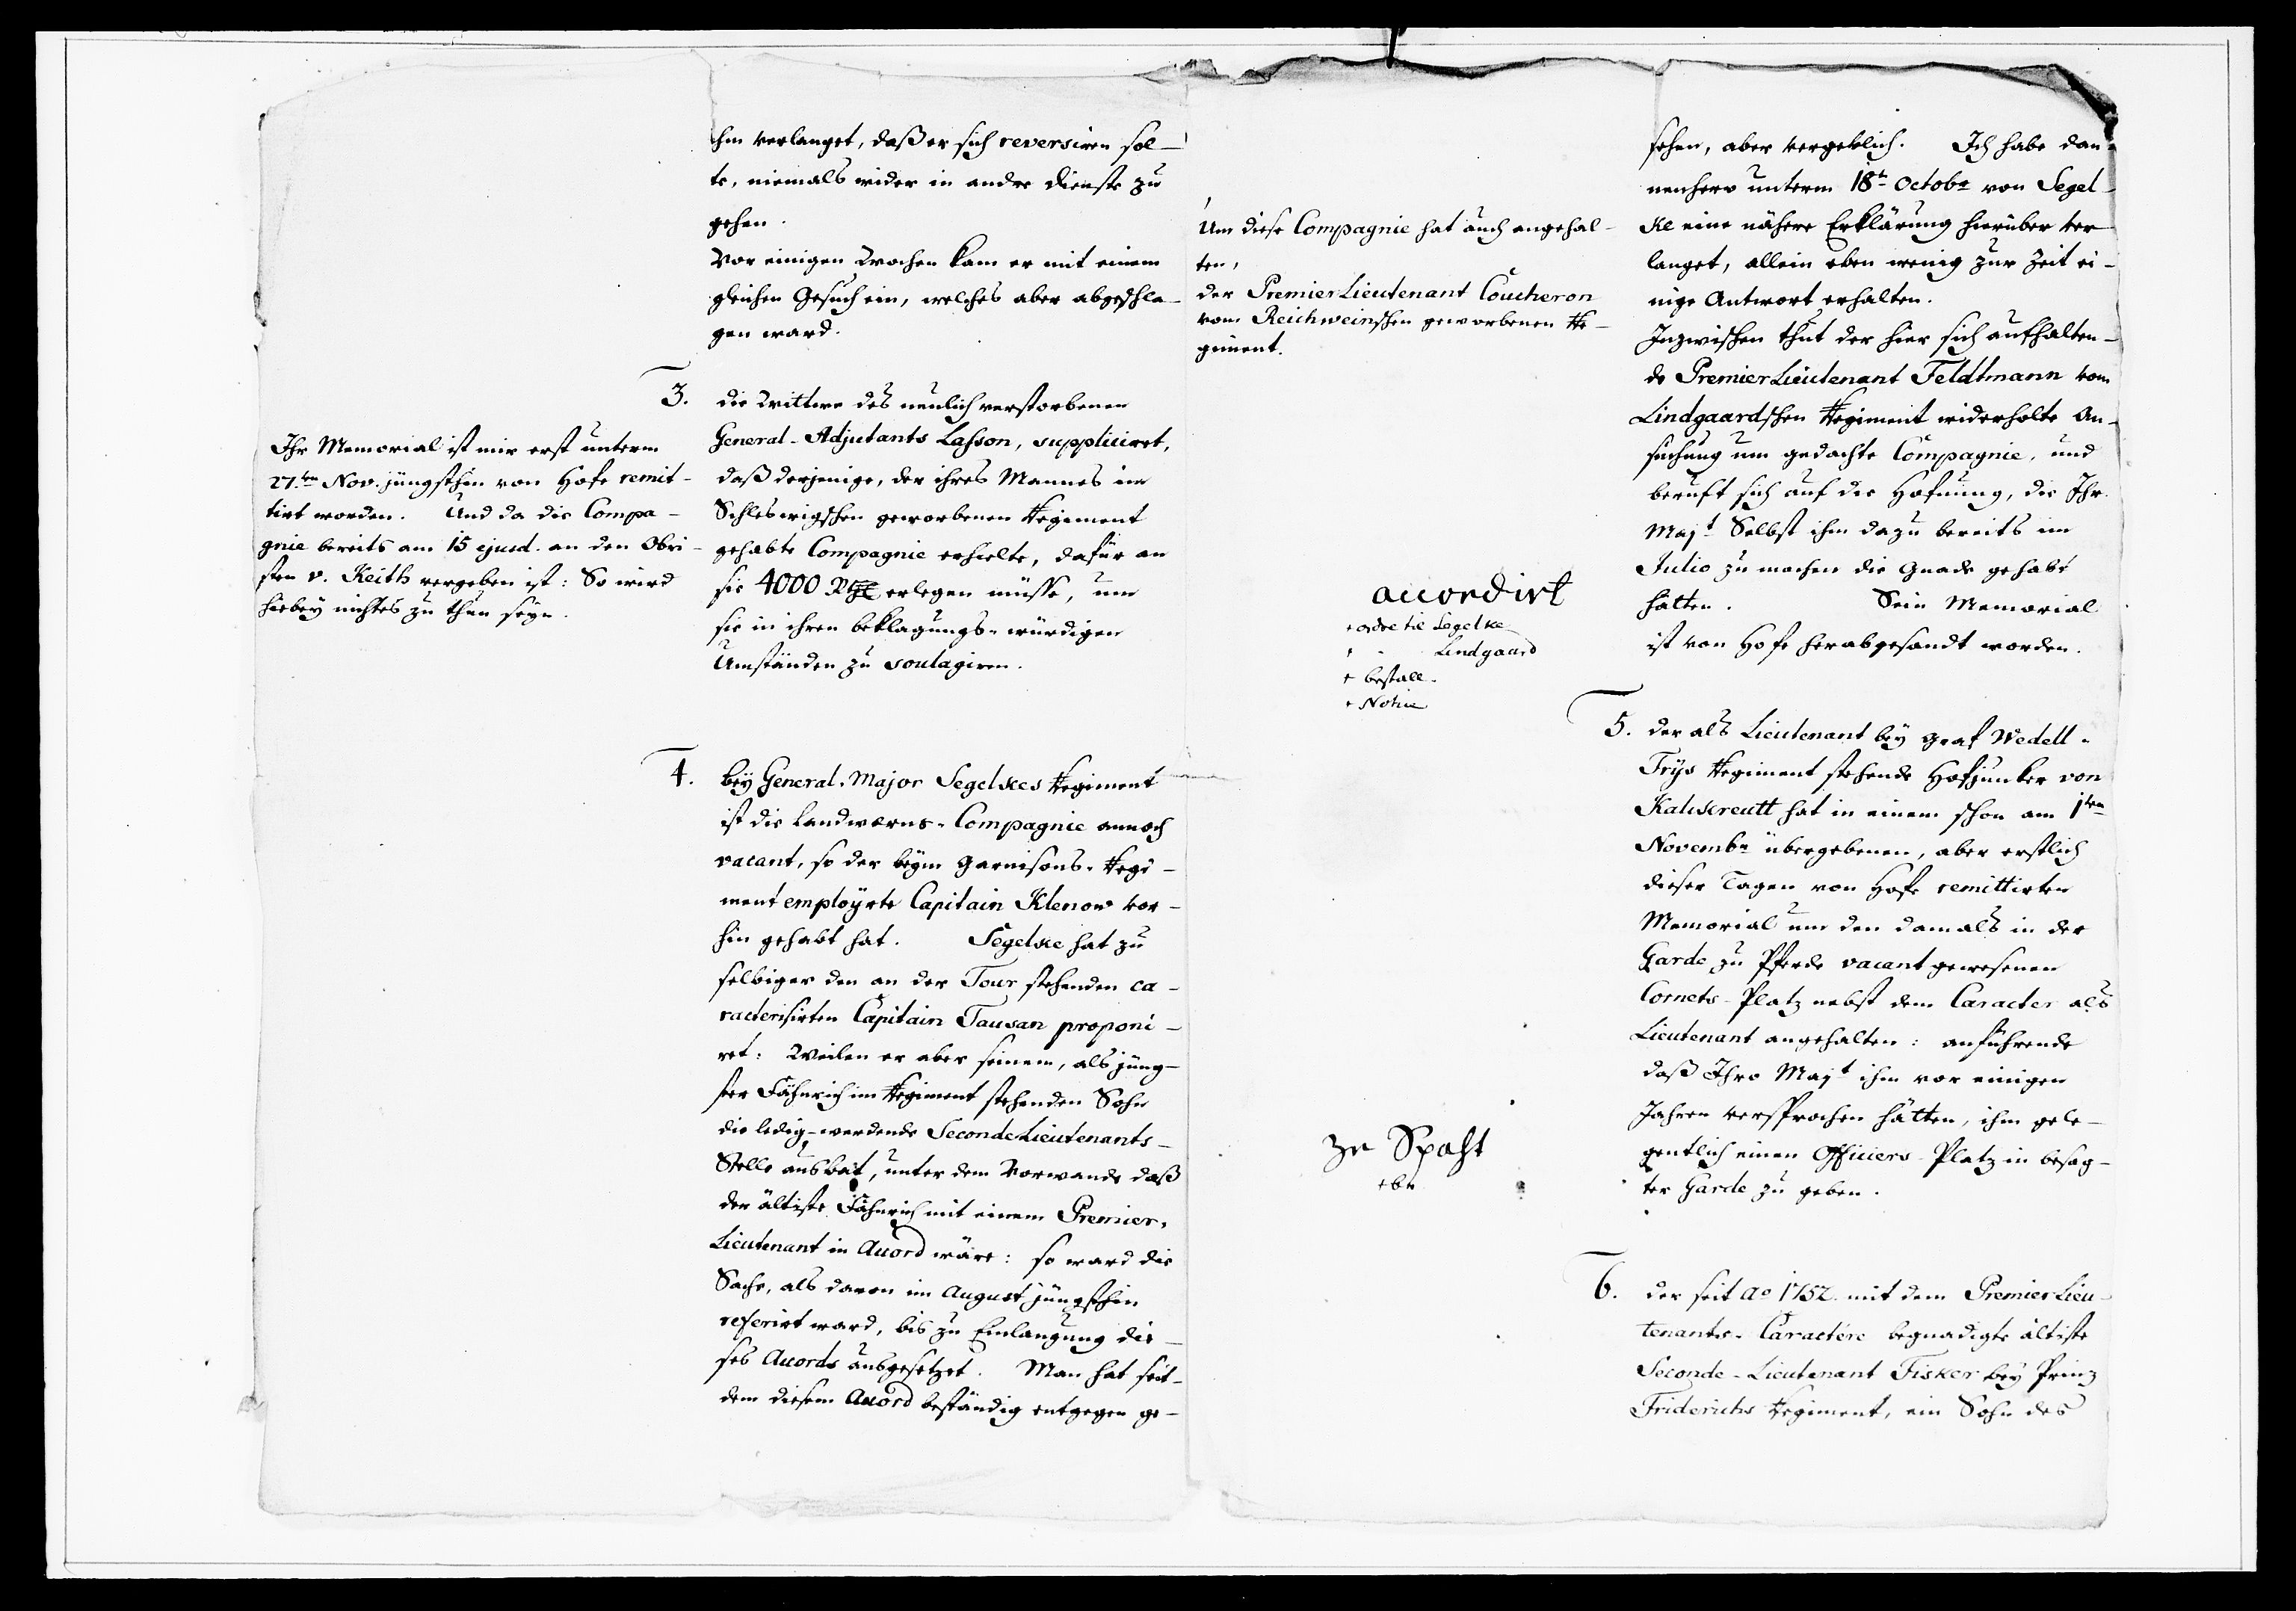 ihm verlanget, daß er sich reversiren sol-
te, niemals wider in andre Dienste zu
gehen.
Vor einigen Wochen kam er mit einem
gleichen Gesuch ein, welches aber abgeschla-
gen ward.
3. die Wittwe des neulich verstorbenen
General-Adjutants Lasson, suppliciret,
daß derjenige, der ihres Mannes im
Schleswigschen geworbenen Regiment
gehabte Compagnie erhielte, dafür an
sie 4000 Rthl erlegen müsse, um
sie in ihren beklagungs-würdigen
Umständen zu soulagiren.
Ihr Memorial ist mir erst unterm
27.ten Nov. jüngsthin von Hofe remit-
tirt worden. Und da die Compa-
gnie bereits am 15 ejusd. an den Obri-
sten v. Keith vergeben ist: So wird
hiebey nichts zu thun seyn.
4. bey General-Major Segelkes Regiment
ist die Landwerns-Compagnie annoch
vacant, so der beym Garnisons-Regi-
ment employrte Capitain Klenow vor-
hin gehabt hat. Segelke hat zu
selbiger den an der Tour stehenden ca-
racterisirten Capitain Tausan proponi-
ret: Weilen er aber seinem, als jüng-
ster Fähnrich im Regiment stehenden Sohn
die ledig-werdende Seconde Lieutenants-
Stelle ausbat, unter dem Vorwande daß
der ältiste Fähnrich mit einem Premier-
Lieutenant in Accord wäre: so ward die
Sache, als davon im August jüngsthin
referirt ward, bis zu Einlangung die-
ses Accords ausgesetzet. Man hat seit-
dem diesem Accord beständig entgegen ge-
Um diese Compagnie hat auch angehal-
ten,
der Premier Lieutenant Coucheron
vom Reichweinschen geworbenen Re-
giment.
sehen, aber vergeblich. Ich habe dan-
nenhero unterm 18t Octobr von Segel-
ke eine nähere Erklärung hierüber ver-
langet, allein eben wenig zur Zeit ei-
nige Antwort erhalten.
Inzwischen thut der hier sich aufhalten-
de Premier Lieutenant Feldtmann vom
Lindgaardschen Regiment widerholte An-
suchung um gedachte Compagnie, und
beruft sich auf die Hofnung, die Ihr.
Majt Selbst ihm dazu bereits im
Julio zu machen die Gnade gehabt
hätten. Sein Memorial
ist von Hofe herabgesandt worden.
accordirt
+ ordre til Segelke
+ - Lindgaard
+ bestall.
+ Notice
5. der als Lieutenant bey Graf Wedell-
Frys Regiment stehende Hofjunker von
Kalckreutt hat in einem schon am 1ten
Novembr übergebenen, aber erstlich
dieser Tagen von Hofe remittirten
Memorial um den damals in der
Garde zu Pferde vacant gewesenen
Cornets-Platz nebst dem Caracter als
Lieutenant angehalten: anführende
daß Ihro Majt ihm vor einigen
Jahren versprochen hätten, ihm gele-
gentlich einen Officiers-Platz in besag-
ter Garde zu geben.
zu Spaht
6. der seit Ao 1752. mit dem Premier Lieu-
tenants-Caractére begnadigte ältiste
Seconde-Lieutenant Fisker bey Prinz
Friderichs Regiment, ein Sohn des